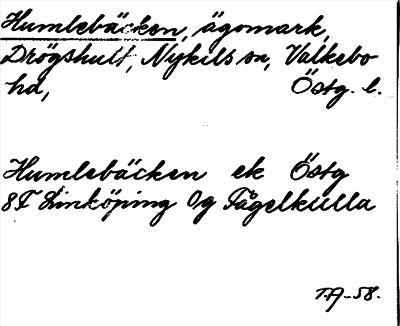 Humlebäcken, ägomark,
Drögshult, Nykils sn, Valkebo
hd, Östg. l.
Humlebäcken ek Östg
8F Linköping 0g Fågelkulla
T.A-58.